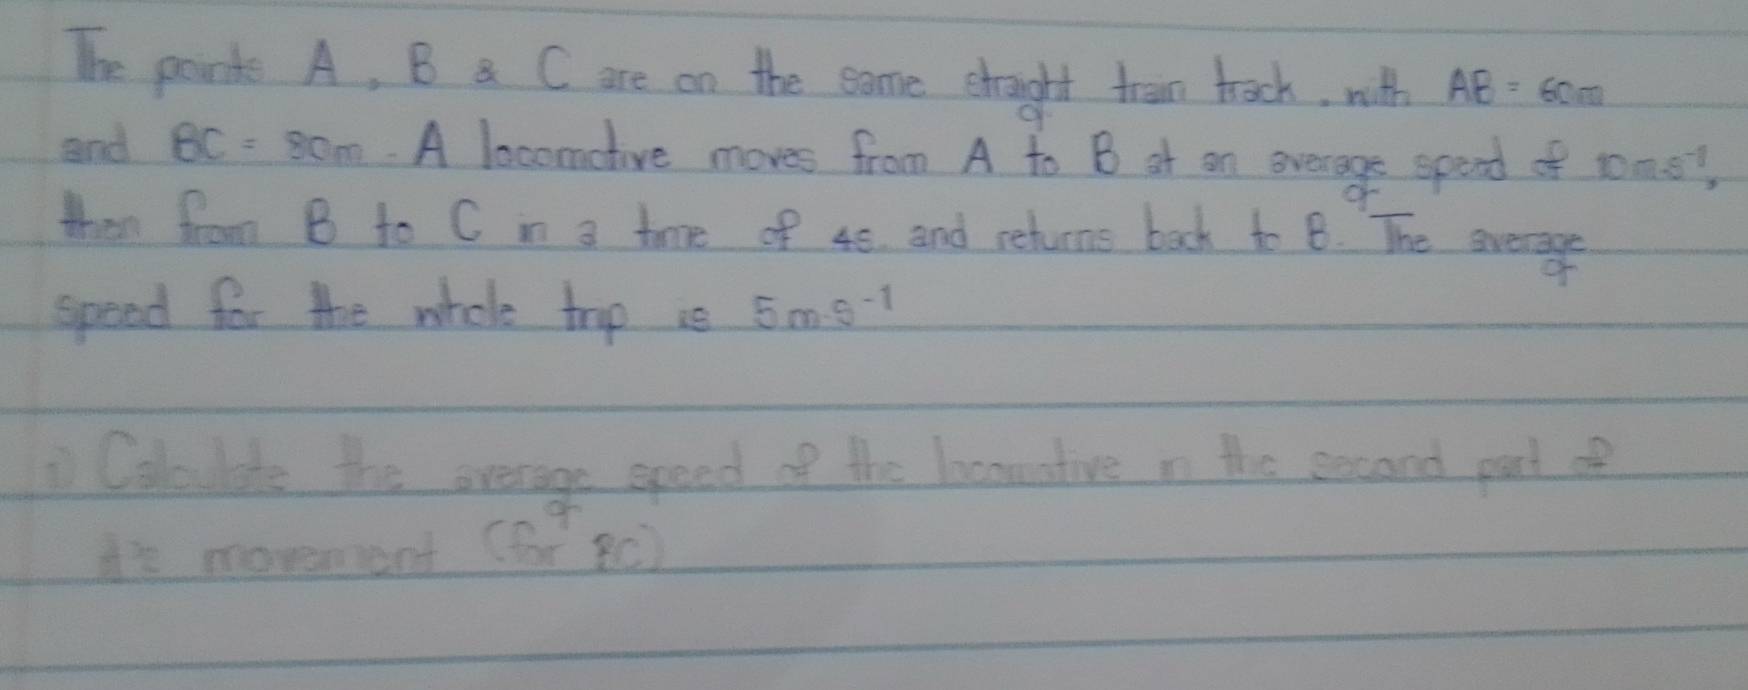 The points A, B & C are on the same straight train track. with AB = 60m
and BC = 80m. A locomotive moves from A to B at an average speed of 10m.s⁻¹,
then from B to C in a time of 4s. and returns back to B. The average
speed for the whole trip is 5m.s⁻¹
i) Calculate the average speed of the locomotive in the second part of
it's movement (for BC)